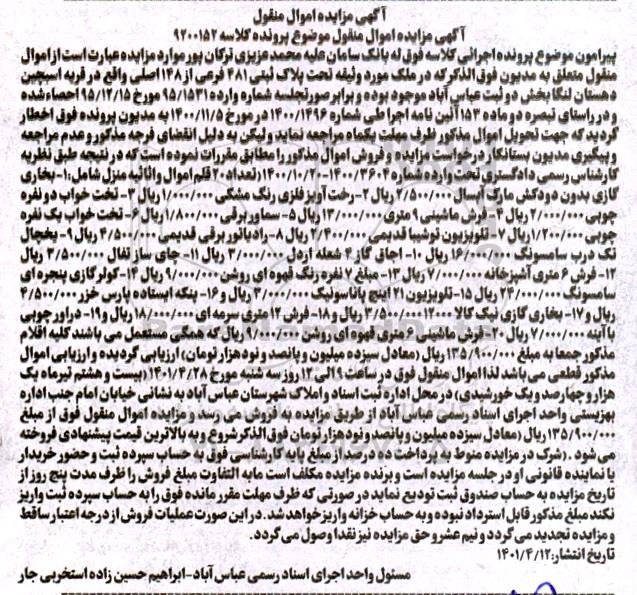 آگهی مزایده اموال منقول
آگهی مزایده اموال منقول موضوع پرونده کلاسه ۹۲۰۰۱۵۲
پیرامون موضوع پرونده اجرائی کلاسه فوق له بانک سامان علیه محمد عزیزی ترکان پور موارد مزایده عبارت است از اموال
منقول متعلق به مدیون فوق الذکر که در ملک مورد وثیقه تحت پلاک ثبتی ۴۸۱ فرعی از ۱۴۸ اصلی واقع در قریه اسپچین
دهستان لنگا بخش دو ثبت عباس آباد موجود بوده و برابر صورتجلسه شماره وارده ۹۵/۱۵۳۱ مورخ ۹۵/۱۲/۱۵ احصاء شده
و در راستای تبصره دو ماده ۱۵۳ آئین نامه اجرا طی شماره ۱۴۰۰/۱۴۹۶ در مورخ ۱۴۰۰/۱۱/۵ به مدیون پرونده فوق اخطار
گردید که جهت تحویل اموال مذکور ظرف مهلت یکماه مراجعه نماید ولیکن به دلیل انقضای فرجه مذکور و عدم مراجعه
و پیگیری مدیون بستانکار درخواست مزایده و فروش اموال مذکور را مطابق مقررات نموده است که در نتیجه طبق نظریه
کارشناس رسمی دادگستری تحت وارده شماره ۱۴۰۰/۳۶۰۴-۱۴۰۰/۱۰/۲۰ (تعداد ۲۰ قلم اموال و اثاثیه منزل شامل: ۱- بخاری
گازی بدون دودکش مارک آبسال ۲/۵۰۰/۰۰۰ ریال ۲- رخت آویز فلزی رنگ مشکی ۱/۰۰۰/۰۰۰ ریال ۳- تخت خواب دو نفره
چوبی ۲/۰۰۰/۰۰۰ ریال ۴- فرش ماشینی ۹ متری ۱۳/۰۰۰/۰۰۰ ریال ۵- سماور برقی ۱/۸۰۰/۰۰۰ ریال ۶- تخت خواب یک نفره
چوبی ۱/۲۰۰/۰۰۰ ریال ۷- تلویزیون توشیبا قدیمی ۲/۴۰۰/۰۰۰ ریال ۸- رادیاتور برقی قدیمی ۴/۵۰۰/۰۰۰ ریال ۹- یخچال
تک درب سامسونگ ۱۶/۰۰۰/۰۰۰ ریال ۱۰- اجاق گاز ۴ شعله آردل ۳/۰۰۰/۰۰۰ ریال ۱۱- چای ساز تفال ۳/۵۰۰/۰۰۰ ریال
۱۲- فرش ۶ متری آشپزخانه ۷/۰۰۰/۰۰۰ ریال ۱۳- مبلغ ۷ نفره رنگ قهوه ای روشن ۹/۰۰۰/۰۰۰ ریال ۱۴- کولر گازی پنجره ای
سامسونگ ۲۴/۰۰۰/۰۰۰ ریال ۱۵- تلویزیون ۲۱ اینچ پاناسونیک ۳/۰۰۰/۰۰۰ ریال و ۱۶- پنکه ایستاده پارس خزر ۴/۵۰۰/۰۰۰
ریال و ۱۷- بخاری گازی نیک کالا ۱۲۰۰۰ ۳/۵۰۰/۰۰۰ ریال و ۱۸- فرش ۱۲ متری سرمه ای ۱۸/۰۰۰/۰۰۰ ریال و ۱۹- دراور چوبی
با آینه ۷/۰۰۰/۰۰۰ ریال ۲۰- فرش ماشینی ۶ متری قهوه ای روشن ۹/۰۰۰/۰۰۰ ریال که همگی مستعمل می باشند کلیه اقلام
مذکور جمعا به مبلغ ۱۳۵/۹۰۰/۰۰۰ ریال (معادل سیزده میلیون و پانصد و نود هزار تومان) ارزیابی گردیده و ارزیابی اموال
مذکور قطعی می باشد لذا اموال منقول فوق در ساعت ۹ الی ۱۲ روز سه شنبه مورخ ۱۴۰۱/۴/۲۸ (بیست و هشتم تیرماه یک
هزار و چهارصد و یک خورشیدی) در محل اداره ثبت اسناد و املاک شهرستان عباس آباد به نشانی خیابان امام جنب اداره
بهزیستی واحد اجرای اسناد رسمی عباس آباد از طریق مزایده به فروش می رسد و مزایده اموال منقول فوق از مبلغ
۱۳۵/۹۰۰/۰۰۰ ریال (معادل سیزده میلیون و پانصد و نود هزار تومان فوق الذکر شروع و به بالاترین قیمت پیشنهادی فروخته
می شود .(شرک در مزایده منوط به پرداخت ده درصد از مبلغ پایه کارشناسی فوق به حساب سپرده ثبت و حضور خریدار
یا نماینده قانونی او در جلسه مزایده است و برنده مزایده مکلف است مابه التفاوت مبلغ فروش را ظرف مدت پنج روز از
تاریخ مزایده به حساب صندوق ثبت تودیع نماید در صورتی که ظرف مهلت مقرر مانده فوق را به حساب سپرده ثبت واریز
نکند مبلغ مذکور قابل استرداد نبوده و به حساب خزانه واریز خواهد شد. در این صورت عملیات فروش از درجه اعتبار ساقط
و مزایده تجدید می گردد و نیم عشر و حق مزایده نیز نقدا وصول می گردد.
تاریخ انتشار: ۱۴۰۱/۴/۱۲
مسئول واحد اجرای اسناد رسمی عباس آباد-ابراهیم حسین زاده استخربی جار